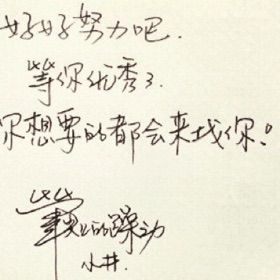 好好努力吧.
等你优秀了.
你想要的都会来找你!
的躁动
水井.